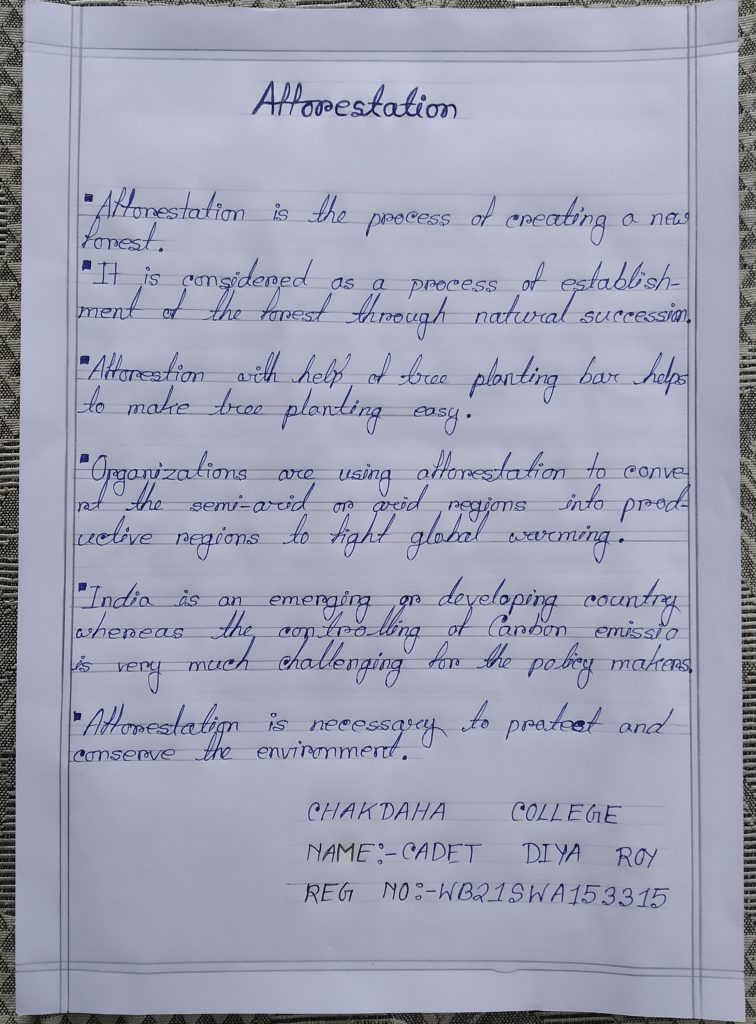 Afforestation
▪Afforestation is the process of creating a new
forest.
▪It is considered as a process of establish-
ment of the forest through natural succession.
▪Afforestion with help of tree planting bar helps
to make tree planting easy.
▪Organizations are using afforestation to conve-
rt the semi-arid or arid regions into prod-
uctive regions to fight global warming.
▪India is an emerging or developing country
whereas the controlling of Carbon emissio
is very much challenging for the policy makers.
▪Afforestation is necessary to protect and
conserve the environment.
CHAKDAHA COLLEGE
NAME:-CADET DIYA ROY
REG NO:-WB21SWA153315